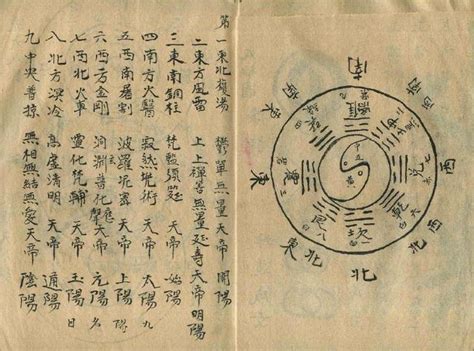 南
西南
西
西北
北
東北
東
離
兌
七
乾
六
坎
八
震
第一東北鑊湯 鬱單無量天帝 開陽
二東方風雷 上上禪善無量延壽天帝 明陽
三東南銅柱 須延 天帝 始陽
四南方火醫 寂然兜術 天帝 太陽 九
五西南屠割 波羅尼蜜 天帝 上陽
六西方金剛 洞淵普化聲應 天帝 元陽 名
七西北火車 靈化梵輔 天帝 玉陽 日
八北方溟冷 高虛清明 天帝 遁陽
九中央普掠 無想無結無愛天帝 陰陽